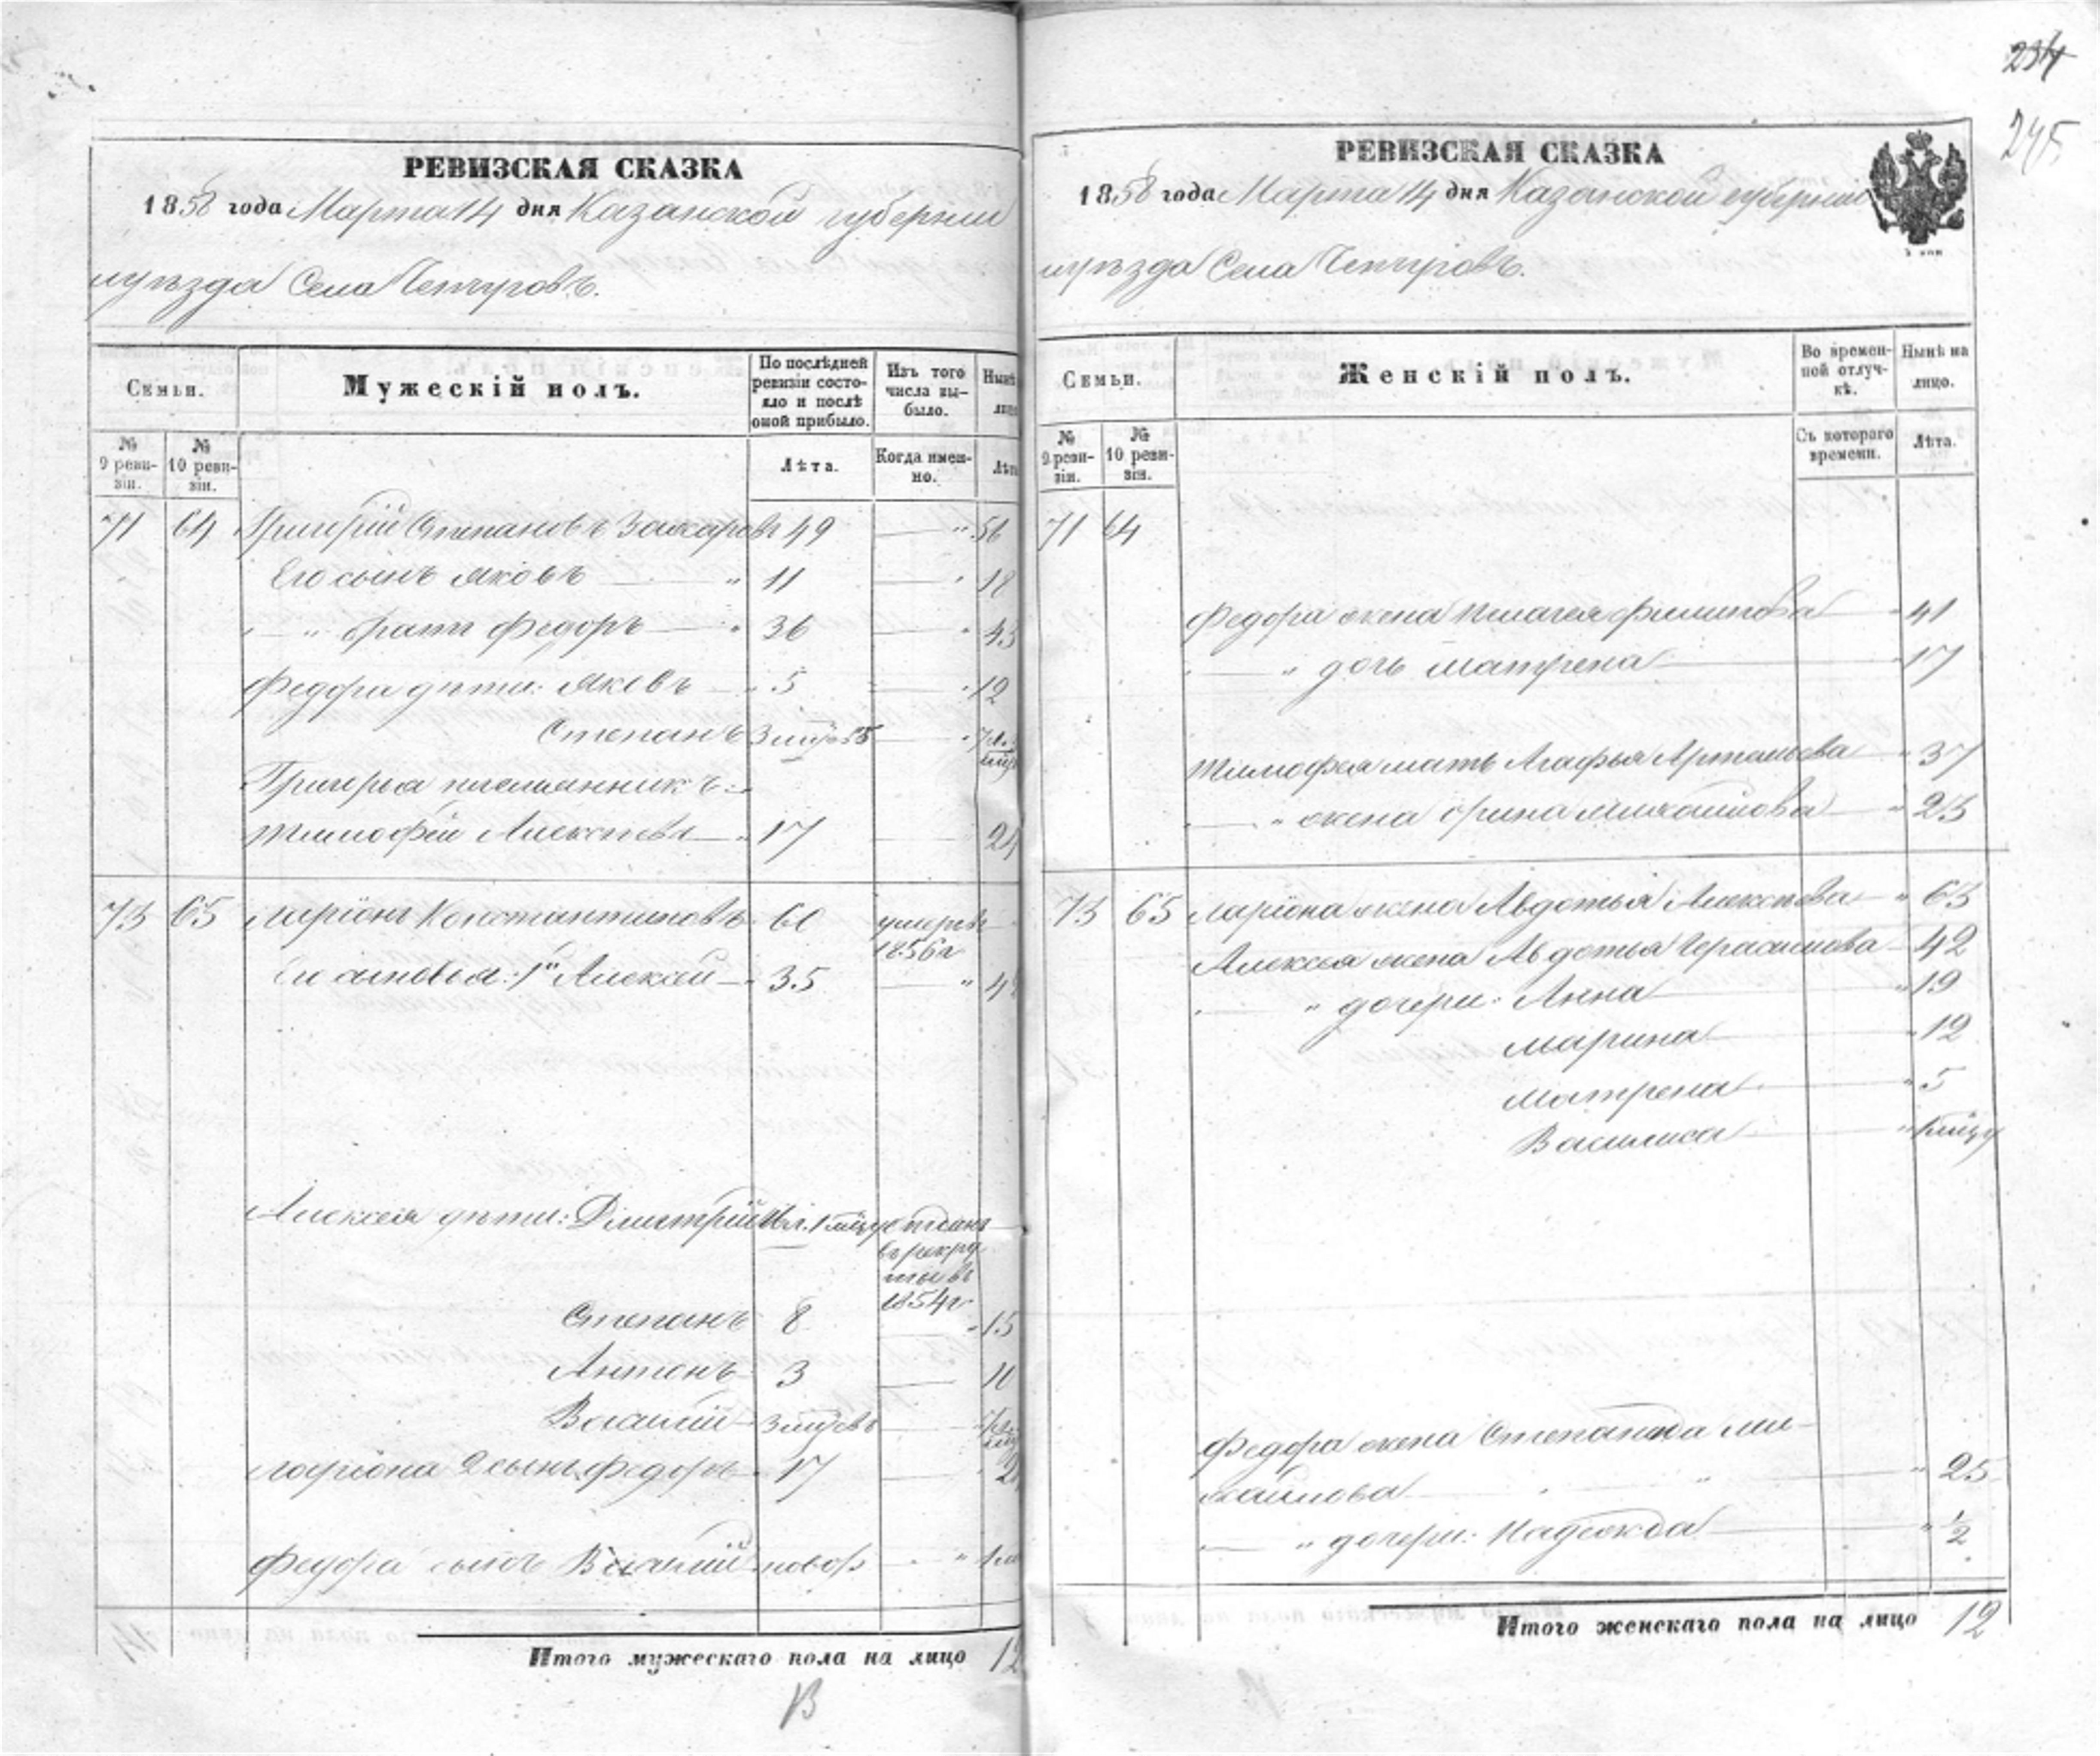 234
245
РЕВИЗСКАЯ СКАЗКА
1858 года Марта 14 дня Казанской губернии
уѣзда Села
Семьи.
Мужескій полъ.
По послѣдней ревизіи состояло и послѣ оной прибыло.
Изъ того числа выбыло.
Нынѣ
№ 9 ревизіи.
№ 10 ревизіи.
Лѣта.
Когда именно.
Лѣта
71 64 Григорій Степановъ Захаровъ 49 — " 56
Его сынъ Яковъ — " 11 — " 18
" — " братъ Федоръ — " 36 — " 43
Федора дѣти: Яковъ — " 5 — " 12
Степанъ 3 мцовъ — " 7 л.
Григорья племянникъ:
Тимофѣй Алексѣевъ — " 17 — 24
73 65 Ларіонъ Константиновъ 60 умеръ
1856 г
Его сыновья: 1й Алексей — " 35 — " 42
Алексея дѣти: Дмитрій отданъ
въ рекру
ты въ
1854 г
Степанъ 8 — " 15
Антонъ 3 — 10
Василій — 3 мцовъ — 7 л.
Ларіона 2 сынъ Федоръ — 17
Федора сынъ Василій — новор — "
Итого мужескаго пола на лицо 12
13
РЕВИЗСКАЯ СКАЗКА
1858 года Марта 14 дня Казанской губерніи
уѣзда Села
Семьи.
Женскій полъ.
Во временной отлучкѣ.
Нынѣ на лицо.
№ 9 ревизіи.
№ 10 ревизіи.
Съ котораго времени.
Лѣта.
71 64
Федора жена Пелагея Филипова — " 41
" — " дочь Матрена — " 17
Тимофея мать Агафья Артамьева — " 37
" — " жена Орина Михайлова — " 23
73 65 Ларіона жена Авдотья Алексѣева — " 63
Алексея жена Авдотья Герасимова — 42
" — " дочери: Анна — " 19
Марина — " 12
Матрена — " 5
Василиса — "
Федора жена Степанида Ми-
хайлова — " 25
" — " дочери: Надежда — " ½
Итого женскаго пола на лицо 12